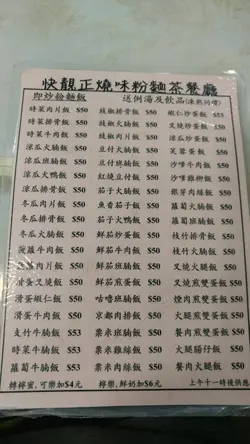 快靚正燒味粉麵茶餐廳
即炒粉麵飯 送例湯及飲品(凍熱同價)
時菜肉片飯 $50 豉椒排骨飯 $50 蝦仁炒蛋飯 $53
時菜排骨飯 $50 豉椒火腩飯 $50 叉燒炒蛋飯 $50
時菜牛肉飯 $50 豉椒肉片飯 $50 涼瓜炒蛋飯 $50
涼瓜火腩飯 $50 豆付火腩飯 $50 芙蓉蛋飯 $50
涼瓜牛肉飯 $50 豆付班腩飯 $50 沙嗲牛肉飯 $50
涼瓜火鴨飯 $50 紅燒豆付飯 $50 沙嗲肉片飯 $50
涼瓜排骨飯 $50 茄子火腩飯 $50 銀芽肉絲飯 $50
冬瓜肉片飯 $50 魚香茄子飯 $50 蘿蔔火腩飯 $50
冬瓜排骨飯 $50 茄子火鴨飯 $50 蘿蔔班腩飯 $50
冬瓜火腩飯 $50 鮮茄炒蛋飯 $50 枝竹火腩飯 $50
菠蘿牛肉飯 $50 鮮茄牛肉飯 $50 枝竹排骨飯 $50
肉片飯 $50 鮮茄班腩飯 $50 叉燒火腿飯 $50
滑蛋叉燒飯 $50 鮮茄煎蛋飯 $50 叉燒煎雙蛋飯 $50
滑蛋蝦仁飯 $53 咕嚕班腩飯 $50 煙肉煎雙蛋飯 $50
滑蛋牛肉飯 $50 京都肉排飯 $50 火腿煎雙蛋飯 $50
支竹牛腩飯 $53 粟米班腩飯 $50 餐肉煎雙蛋飯 $50
時菜牛腩飯 $53 粟米雞絲飯 $50 火腿腸仔飯 $50
蘿蔔牛腩飯 $53 粟米肉絲飯 $50 餐肉火腿飯 $50
轉檸蜜,可樂加$4元 檸樂,鮮奶加$6元 上午十一時後供應